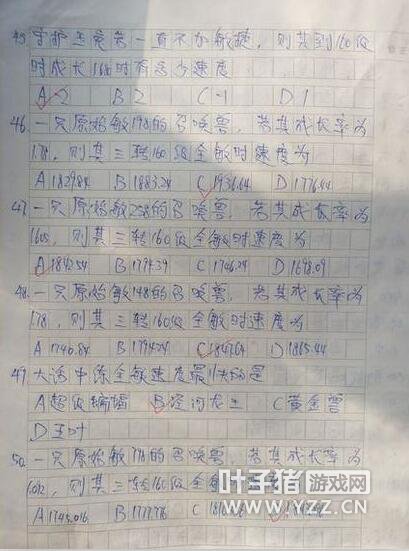 45. 守护王竞若一直不加敏捷，则其到160级
时成长1.60时有多少速度
A -2 B 2 C -1 D 1
46. 一只原始敏198的召唤兽，若其成长率为
1.78，则其三转160级全敏时速度为
A 1829.84 B 1883.24 C 1936.64 D 1776.44
47. 一只原始敏258的召唤兽，若其成长率为
1.605，则其三转160级全敏时速度为
A 1842.54 B 1794.39 C 1746.24 D 1698.09
48. 一只原始敏148的召唤兽，若其成长率为
1.78，则其三转160级全敏时速度为
A 1740.84 B 1794.24 C 1847.64 D 1865.44
49. 大话中除全敏速度最快的是
A 超级蝙蝠 B 泾河龙王 C 黄金兽
D 玉叶
50. 一只原始敏 的召唤兽，若其成长率为
则其三转160级全敏
A 1745.016 B 1777.776 C D
叶子猪游戏网
YZZ.CN